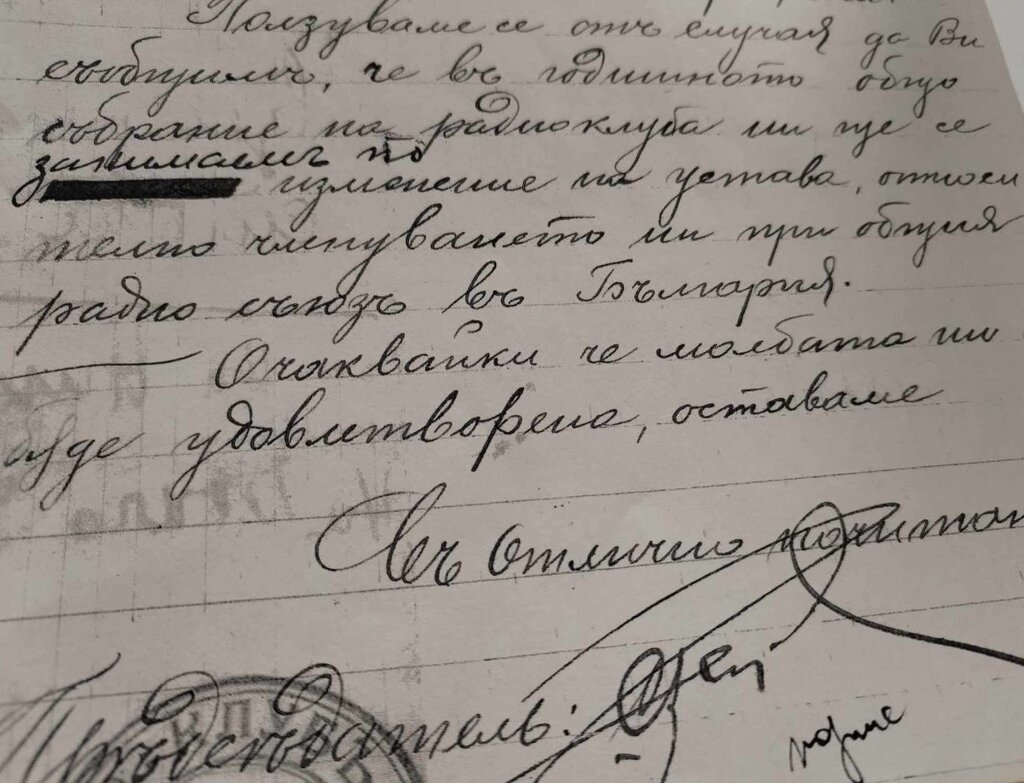 Ползуваме се отъ случая да Ви
съобщимъ, че въ годишното общо
събрание на радиоклуба ни ще се
занимаемъ по
изменение на устава, относи
телно членуването ни при общия
радио съюзъ въ България.
Очаквайки че молбата ни
бѫде удовлетворена, оставаме
Съ отлично почитан
Председатель: